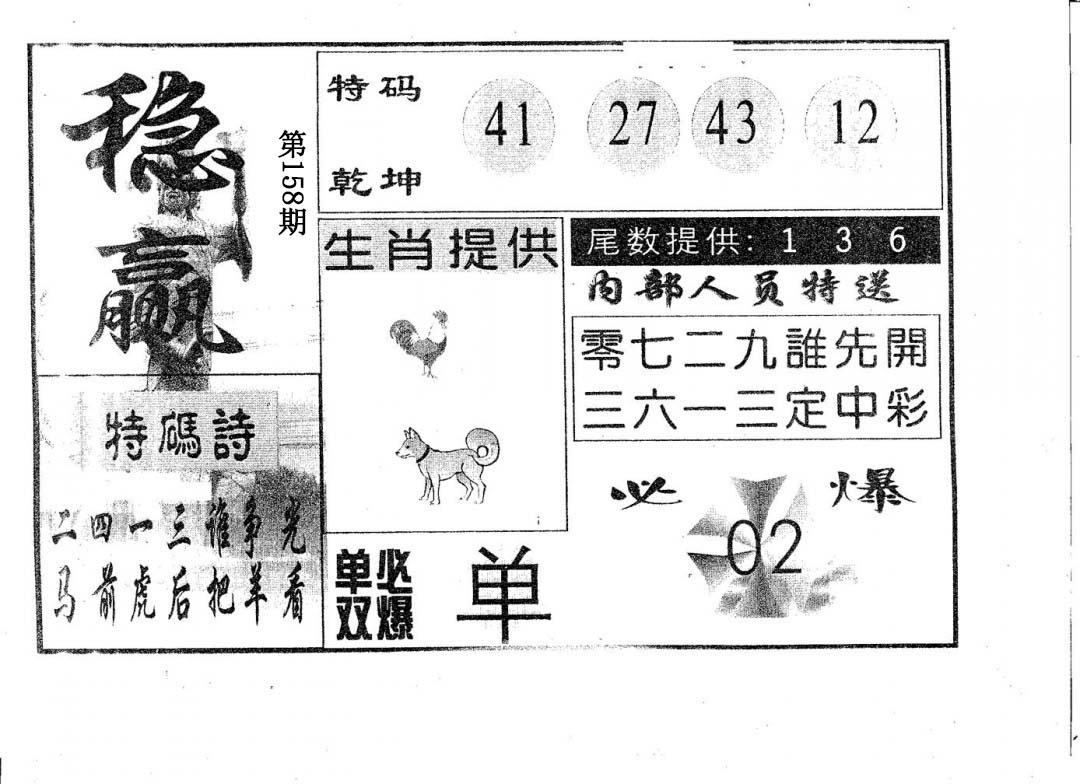 稳赢
第158期
特码诗
二四一三谁争光
马前虎后把羊看
特码
乾坤
41 27 43 12
生肖提供
单双
必爆
单
尾数提供: 1 3 6
内部人员特送
零七二九誰先開
三六一三定中彩
必爆
02